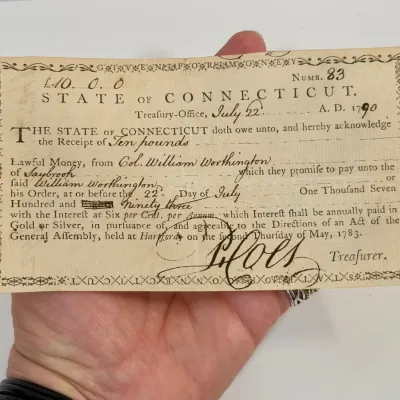 GIVEN FOR MONEY
£10. 0. 0 NUMB. 83
STATE OF CONNECTICUT.
Treasury-Office, July 22d A. D. 1790
THE STATE OF CONNECTICUT doth owe unto, and hereby acknowledge
the Receipt of Ten pounds
Lawful Money, from Col. William Worthington
of Saybrook which they promise to pay unto the
said William Worthington or
his Order, at or before the 22d Day of July One Thousand Seven
Hundred and Ninety three
with the Interest at Six per Cent. per Annum, which Interest shall be annually paid in
Gold or Silver, in pursuance of, and agreeable to the Directions of an Act of the
General Assembly, held at Hartford on the second Thursday of May, 1783.
Treasurer.
STATE OF CONNECTICUT